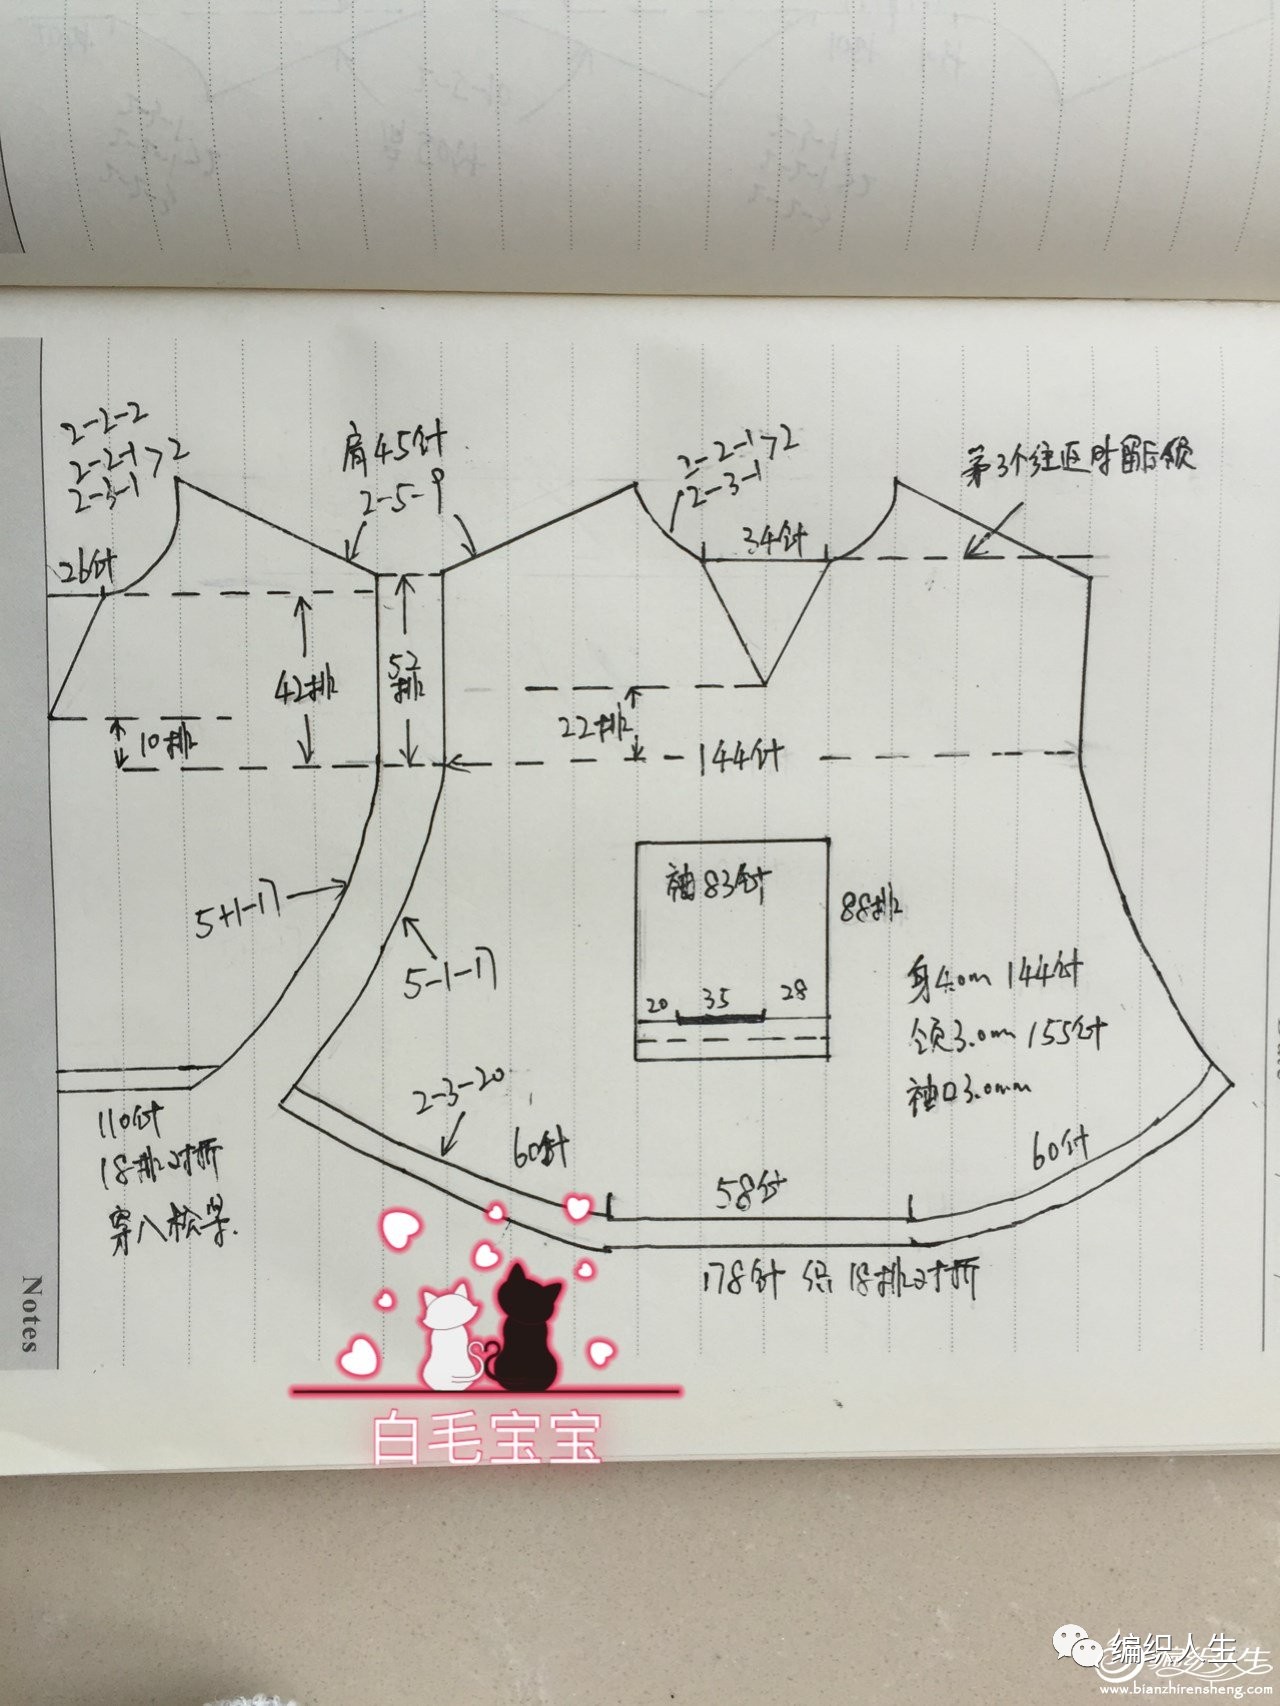 2-2-2
2-2-1>2
2-3-1
26针
肩45针
2-5-9
2-2-1>2
2-3-1
34针
第3个往返时留后领
42排
52排
10排
22排
144针
5+1-17
5-1-17
袖83针
88排
20 35 28
身4.0m 144针
领3.0m 155针
袖口3.0mm
2-3-20
60针
58针
60针
110针
18排对折
178针 织 18排对折
Notes
白毛宝宝
编织人生
编织人生
www.bianzhirensheng.com